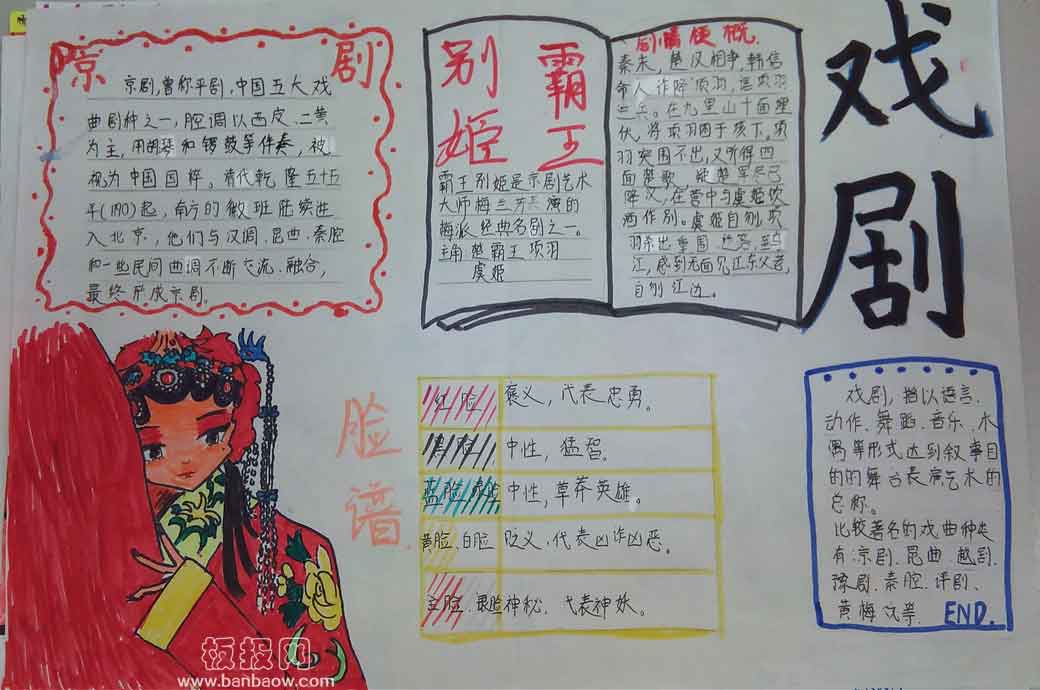 戏剧
京剧
京剧,曾称平剧,中国五大戏
曲剧种之一,腔调以西皮、二黄
为主,用胡琴和锣鼓等伴奏,被
视为中国国粹。清代乾隆五十五
年(1790)起,南方的徽班陆续进
入北京,他们与汉调、昆曲、秦腔
和一些民间曲调不断交流、融合,
最终形成京剧。
霸王
别姬
霸王别姬是京剧艺术
大师梅兰芳 演的
梅派经典名剧之一。
主角 楚霸王 项羽
虞姬
剧情梗概
秦末,楚汉相争,韩信
命人诈降项羽,
兵。在九里山十面埋
伏,将项羽困于垓下。项
羽突围不出,又听得四
面楚歌
降汉,在营中与虞姬饮
酒作别。虞姬自刎,项
羽杀出重围
江,感到无面见江东父老,
自刎江边。
脸谱
红脸 褒义,代表忠勇。
中性,猛智。
蓝脸 中性,草莽英雄。
黄脸、白脸 贬义、代表凶诈凶恶。
神秘,代表神妖。
戏剧,指以语言、
动作、舞蹈、音乐、木
偶等形式达到叙事目
的的舞台表演艺术的
总称。
比较著名的戏曲种类
有:京剧、昆曲、越剧、
豫剧、秦腔、评剧、
黄梅戏等. END.
板报网
www.banbaow.com